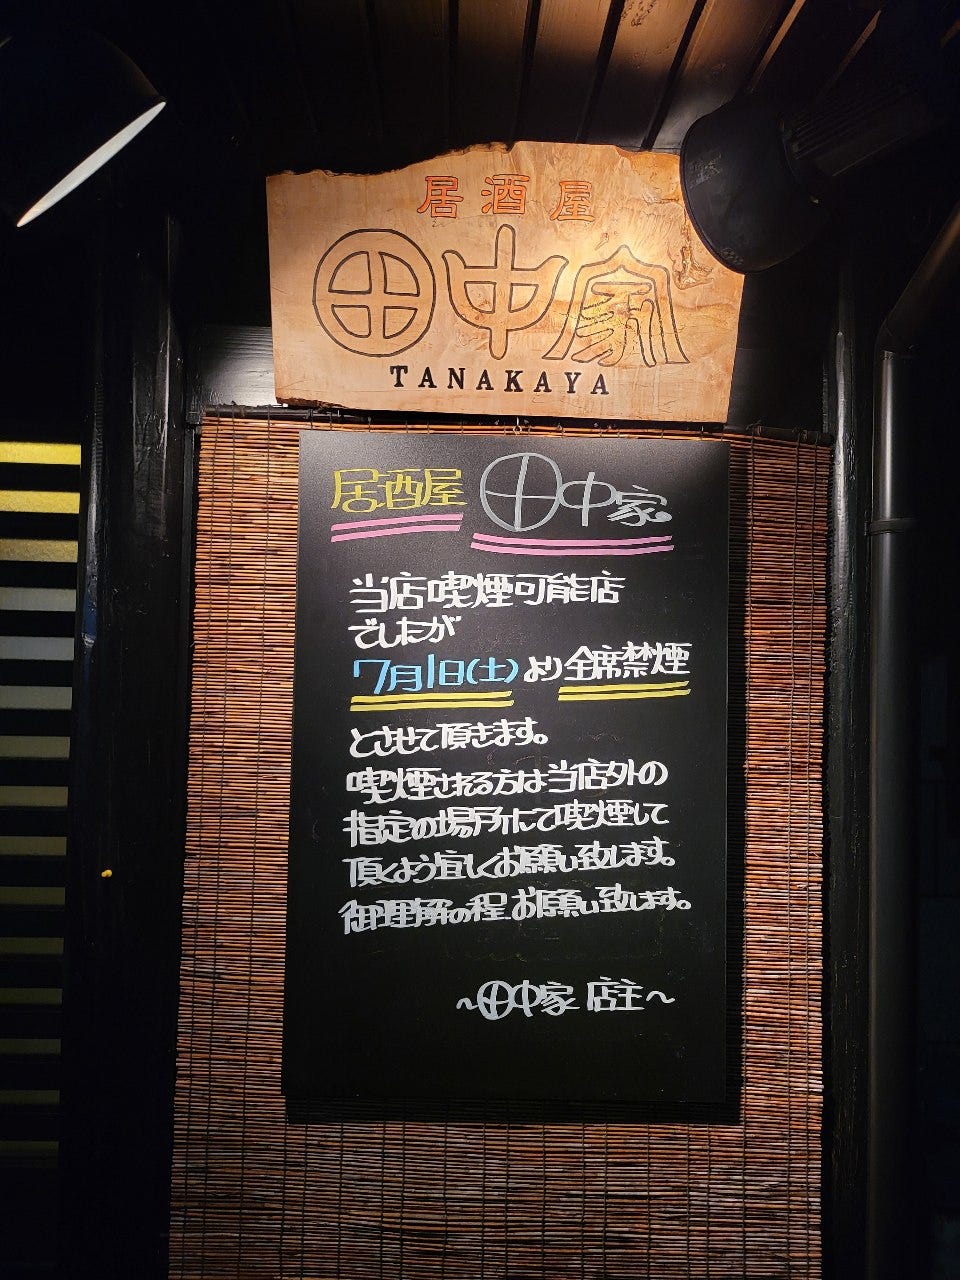 居酒屋
田中家
TANAKAYA
居酒屋 田中家
当店喫煙可能店
でしたが
7月1日(土)より全席禁煙
とさせて頂きます。
喫煙される方は当店外の
指定の場所にて喫煙して
頂くよう宜しくお願い致します。
御理解の程お願い致します。
~田中家 店主~